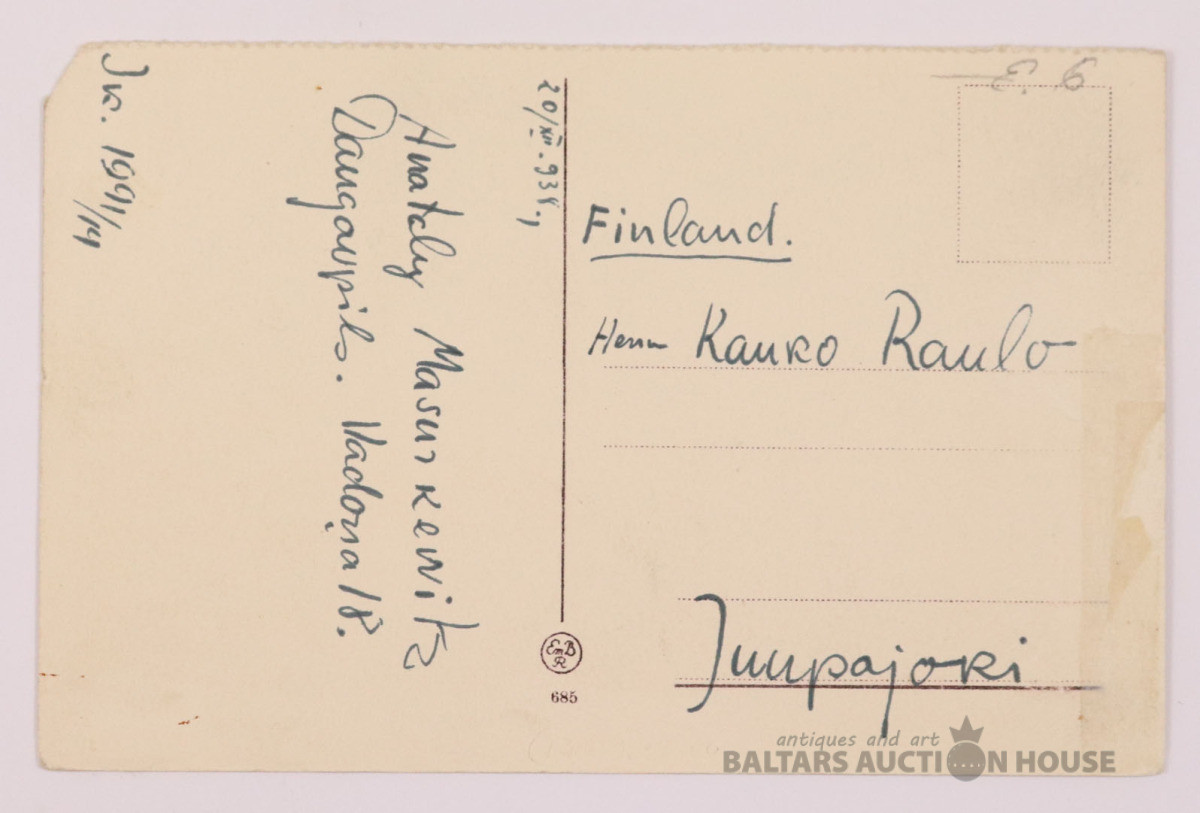 20/XII-938,
Anatoly Masurkewitz
Daugavpils. Vadoņa 18.
Jr. 1991/14
E. 6
Finland.
Herrn Kauko Raulo
Juupajoki
EmBR
685
antiques and art
BALTARS AUCTION HOUSE